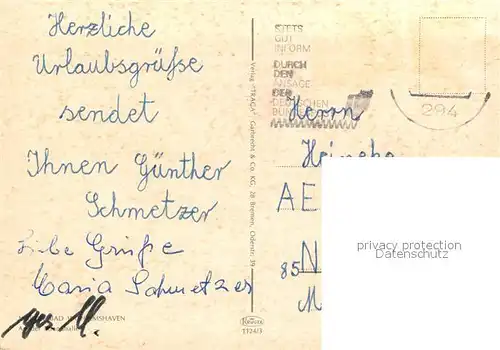 Herzliche
Urlaubsgrüße
sendet
Ihnen Günther
Schmetzer
Liebe Grüße
Maria Schmetzer
BAD
HAVEN
Verlag "TRACA" & Co. KG, 28 Bremen, Oldenstr. 39
1124/3
STETS
GUT
INFORM
DURCH
DEN
ANSAGE
DER
DEUTSCHEN
BUN
294
Herrn
Heineke
AE
85 N
M
privacy protection
Datenschutz